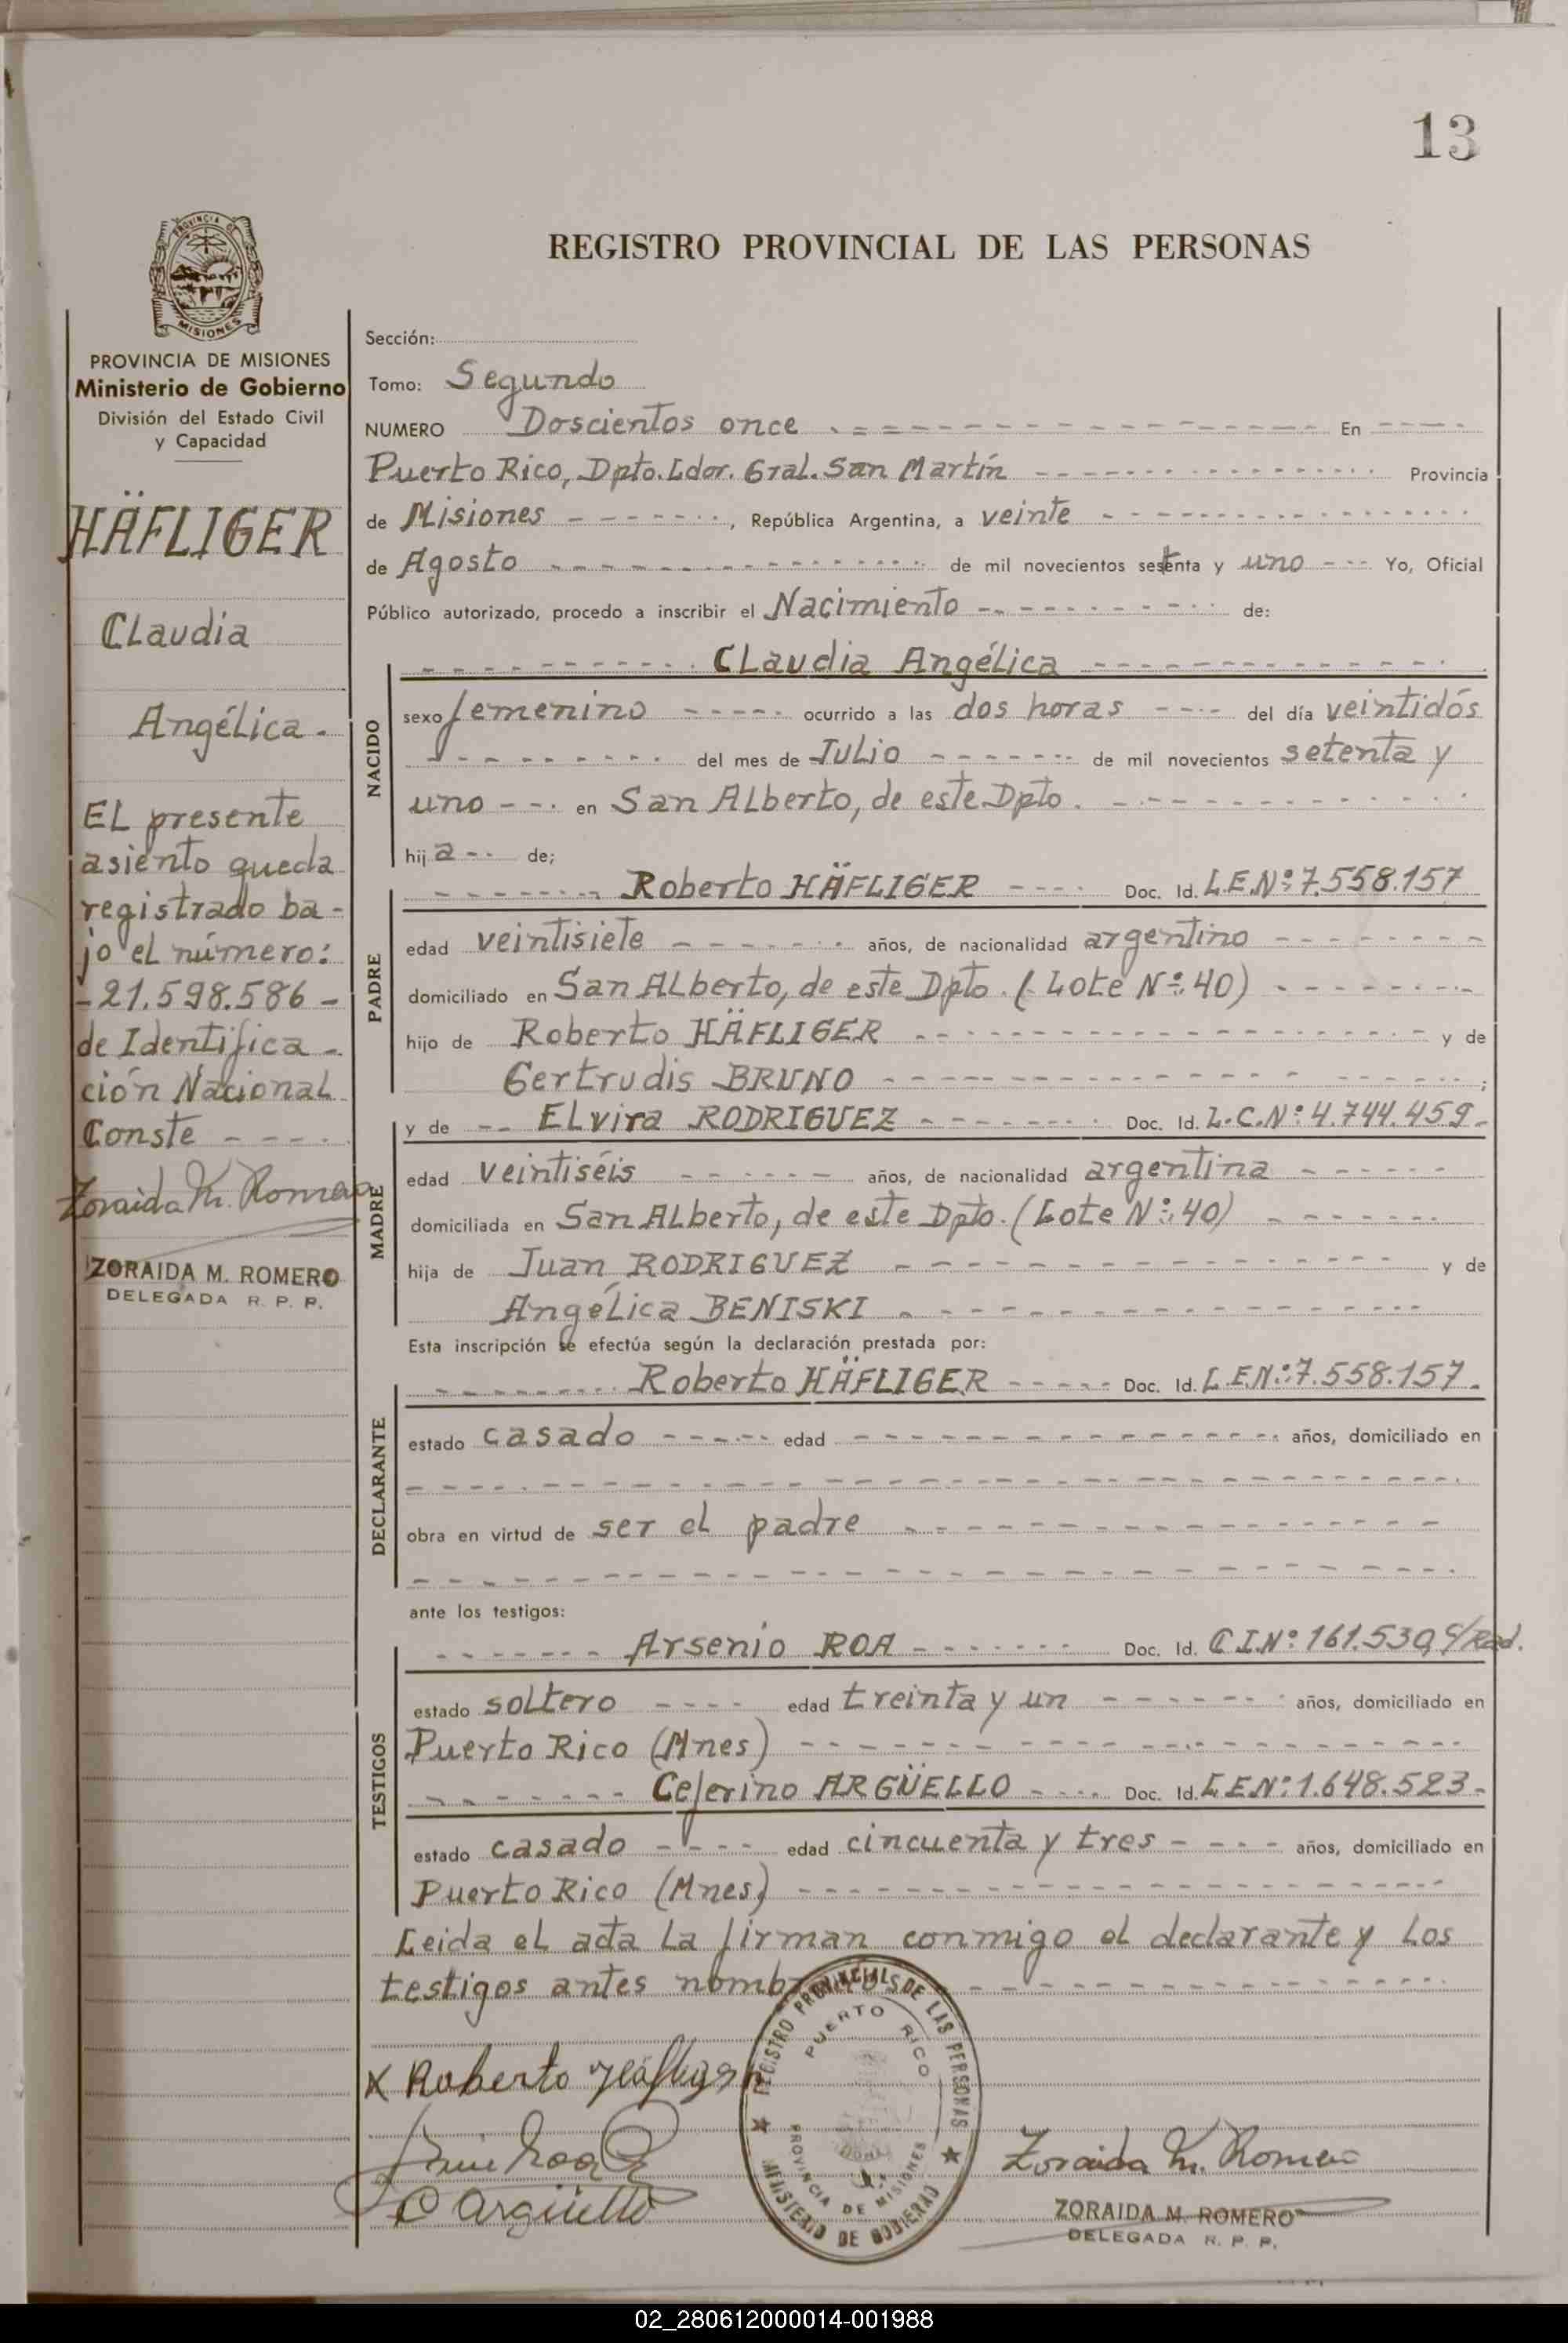 13
REGISTRO PROVINCIAL DE LAS PERSONAS
PROVINCIA DE MISIONES
PROVINCIA DE MISIONES
Ministerio de Gobierno
División del Estado Civil
y Capacidad
HÄFLIGER
Claudia
Angélica.
El presente
asiento queda
registrado ba-
jo el número:
-21.598.586-
de Identifica-
ción Nacional
Conste ----
Zoraida M. Romero
ZORAIDA M. ROMERO
DELEGADA R. P. P.
Sección:
Tomo: Segundo
NUMERO Doscientos once En
Puerto Rico, Dpto. Ldor. Gral. San Martín Provincia
de Misiones, República Argentina, a veinte
de Agosto de mil novecientos setenta y uno Yo, Oficial
Público autorizado, procedo a inscribir el Nacimiento de:
Claudia Angélica
NACIDO
sexo femenino ocurrido a las dos horas del día veintidós
del mes de Julio de mil novecientos setenta y
uno en San Alberto, de este Dpto.
hija de;
PADRE
Roberto HÄFLIGER Doc. Id. L.E.Nº: 7.558.157
edad veintisiete años, de nacionalidad argentino
domiciliado en San Alberto, de este Dpto. (Lote Nº: 40)
hijo de Roberto HÄFLIGER y de
Gertrudis BRUNO ;
MADRE
y de Elvira RODRIGUEZ Doc. Id. L.C.Nº: 4.744.459.
edad veintiséis años, de nacionalidad argentina
domiciliada en San Alberto, de este Dpto. (Lote Nº: 40)
hija de Juan RODRIGUEZ y de
Angélica BENISKI
Esta inscripción se efectúa según la declaración prestada por:
DECLARANTE
Roberto HÄFLIGER Doc. Id. L.E.Nº: 7.558.157.
estado casado edad años, domiciliado en
obra en virtud de ser el padre
ante los testigos:
TESTIGOS
Arsenio ROA Doc. Id. C.I.Nº: 161.530, c/Rad.
estado soltero edad treinta y un años, domiciliado en
Puerto Rico (Mnes)
Ceferino ARGÜELLO Doc. Id. L.E.Nº: 1.648.523.
estado casado edad cincuenta y tres años, domiciliado en
Puerto Rico (Mnes)
Leida el acta la firman conmigo el declarante y los
testigos antes nombrados
REGISTRO PROVINCIAL DE LAS PERSONAS
PUERTO RICO
PROVINCIA DE MISIONES
MINISTERIO DE GOBIERNO
X Roberto Häfliger
C Argüello
Zoraida M. Romero
ZORAIDA M. ROMERO
DELEGADA R. P. P.
02_280612000014-001988